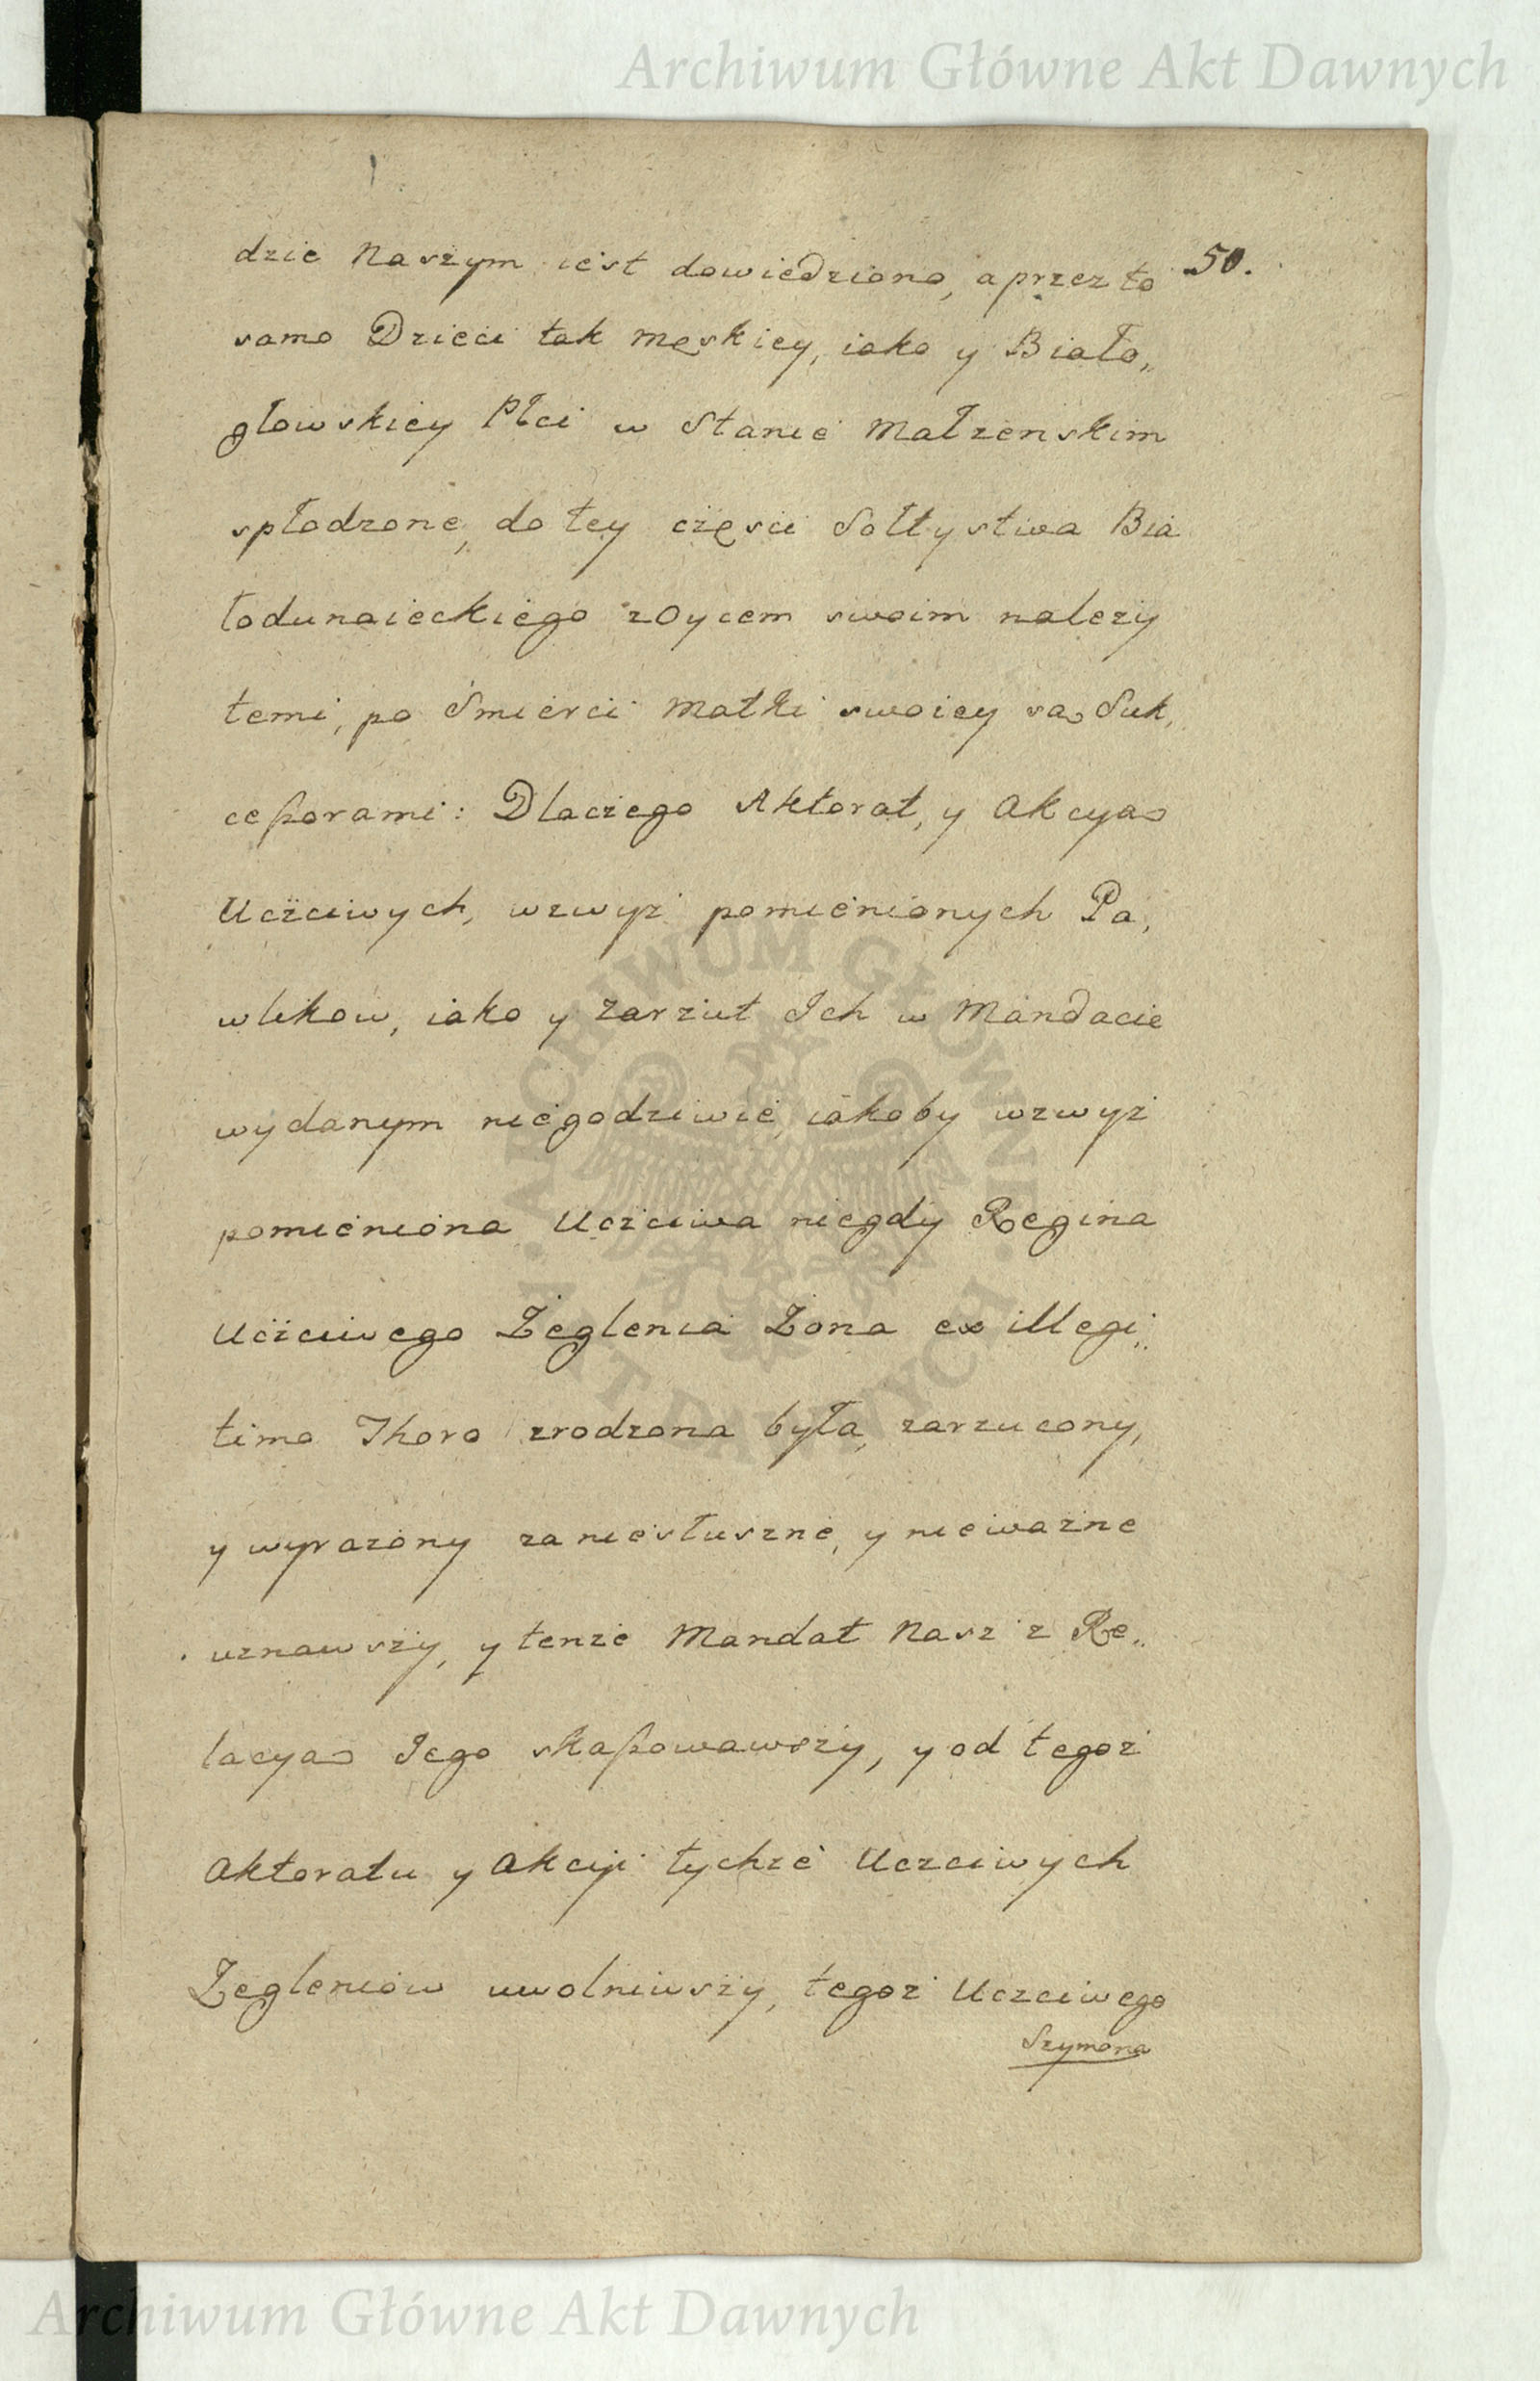 Archiwum Główne Akt Dawnych
50.
dzie Naszym iest dowiedziono, a przez to
samo Dzieci tak męskiey, iako y Biało„
głowskiey Płci w Stanie Małzenskim
spłodzone, do tey częsci Sołtystwa Bia
łodunaieckiego z Oycem swoim nalezy
temi, po Smierci Matki swoiey są Suk,
ceßorami: Dlaczego Aktorat, y Akcyą
Uczciwych, wzwyż pomienionych Pa,
wlikow, iako y zarzut Ich w Mandacie
wydanym niegodziwie, iakoby wzwyż
pomieniona Uczciwa niegdy Regina
Uczciwego Żeglenia Żona ex illegi„
timo Thoro zrodzona była, zarzucony,
y wyrazony za niesłuszne, y nieważne
uznawszy, y tenże Mandat Nasz z Re„
lacyą Jego skaßowawszy, y od tegoż
Aktoratu y Akcyi tychże Uczciwych
Żegleniów uwolniwszy, tegoż Uczciwego
Szymona
ARCHIWUM GŁÓWNE · AKT DAWNYCH ·
Archiwum Główne Akt Dawnych